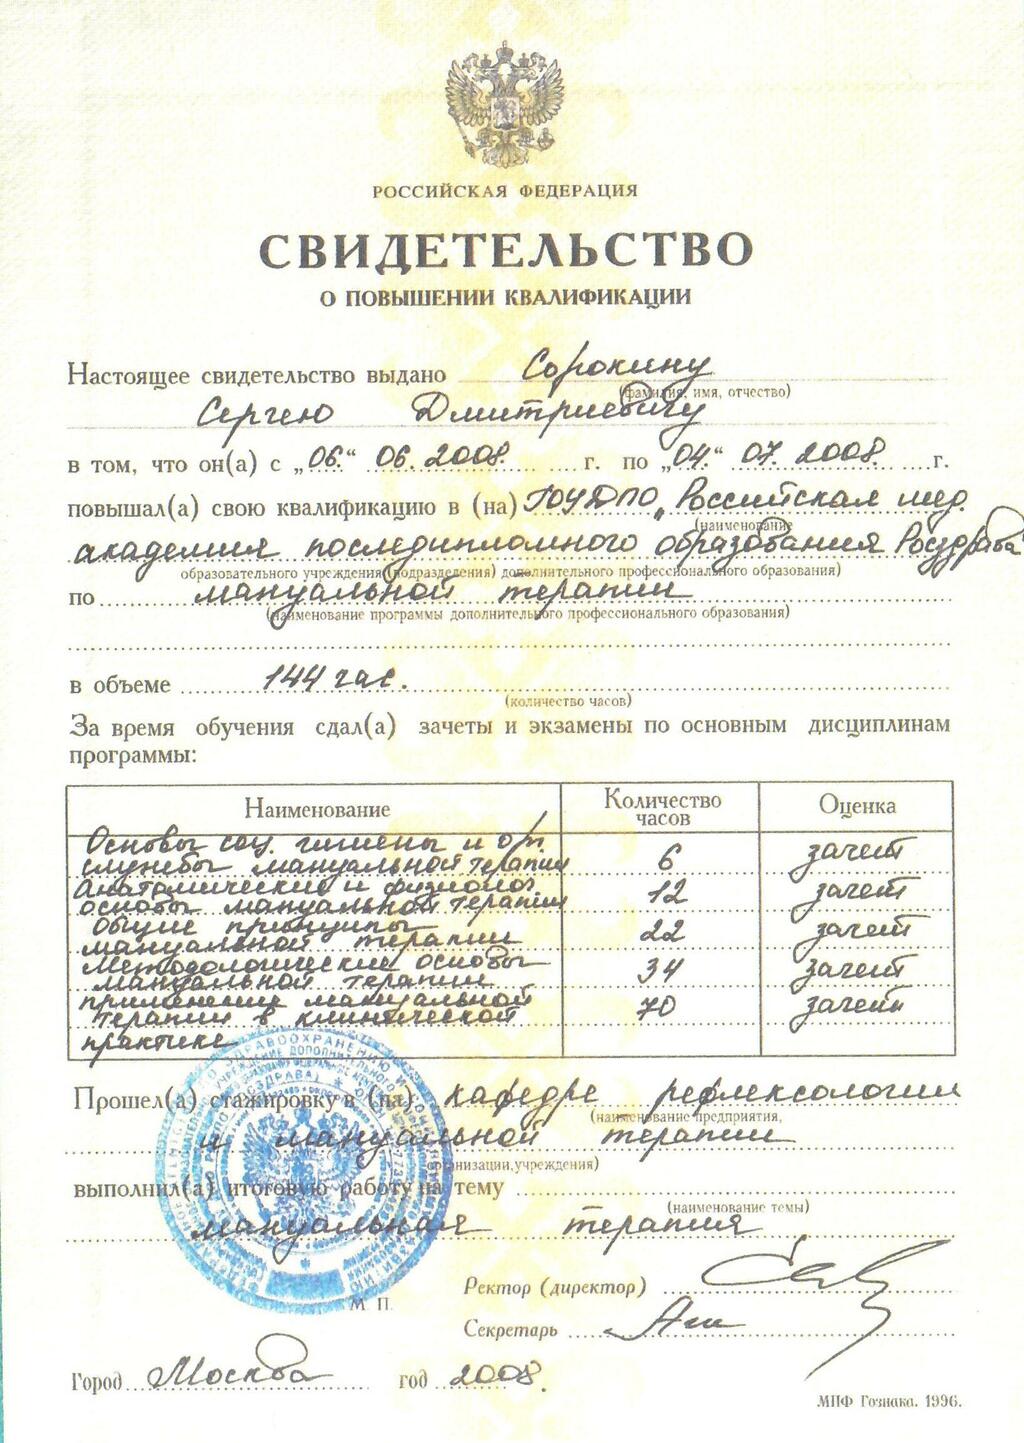 РОССИЙСКАЯ ФЕДЕРАЦИЯ
СВИДЕТЕЛЬСТВО
О ПОВЫШЕНИИ КВАЛИФИКАЦИИ
Настоящее свидетельство выдано Сорокину
(фамилия, имя, отчество)
Сергею Дмитриевичу
в том, что он(а) с „06.“ 06. 2008. г. по „04.“ 07. 2008. г.
повышал(а) свою квалификацию в (на) ГОУДПО „Российская мед.
(наименование
академия последипломного образования Росздрава
образовательного учреждения (подразделения) дополнительного профессионального образования)
по мануальной терапии
(наименование программы дополнительного профессионального образования)
в объеме 144 час.
(количество часов)
За время обучения сдал(а) зачеты и экзамены по основным дисциплинам
программы:
Наименование Количество часов Оценка
Основы соц. гигиены и
службы мануальной терапии 6 зачет
Анатомические и физиолог.
основы мануальной терапии 12 зачет
Общие принципы
мануальной терапии 22 зачет
Методологические основы
мануальной терапии 34 зачет
применение мануальной
терапии в клинической 70 зачет
практике
Прошел(а) стажировку в (на) кафедре рефлексологии
(наименование предприятия,
и мануальной терапии
организации, учреждения)
выполнил(а) итоговую работу на тему
(наименование темы)
мануальная терапия
Ректор (директор)
М П.
Секретарь
Город Москва год 2008.
МПФ Гознака. 1996.